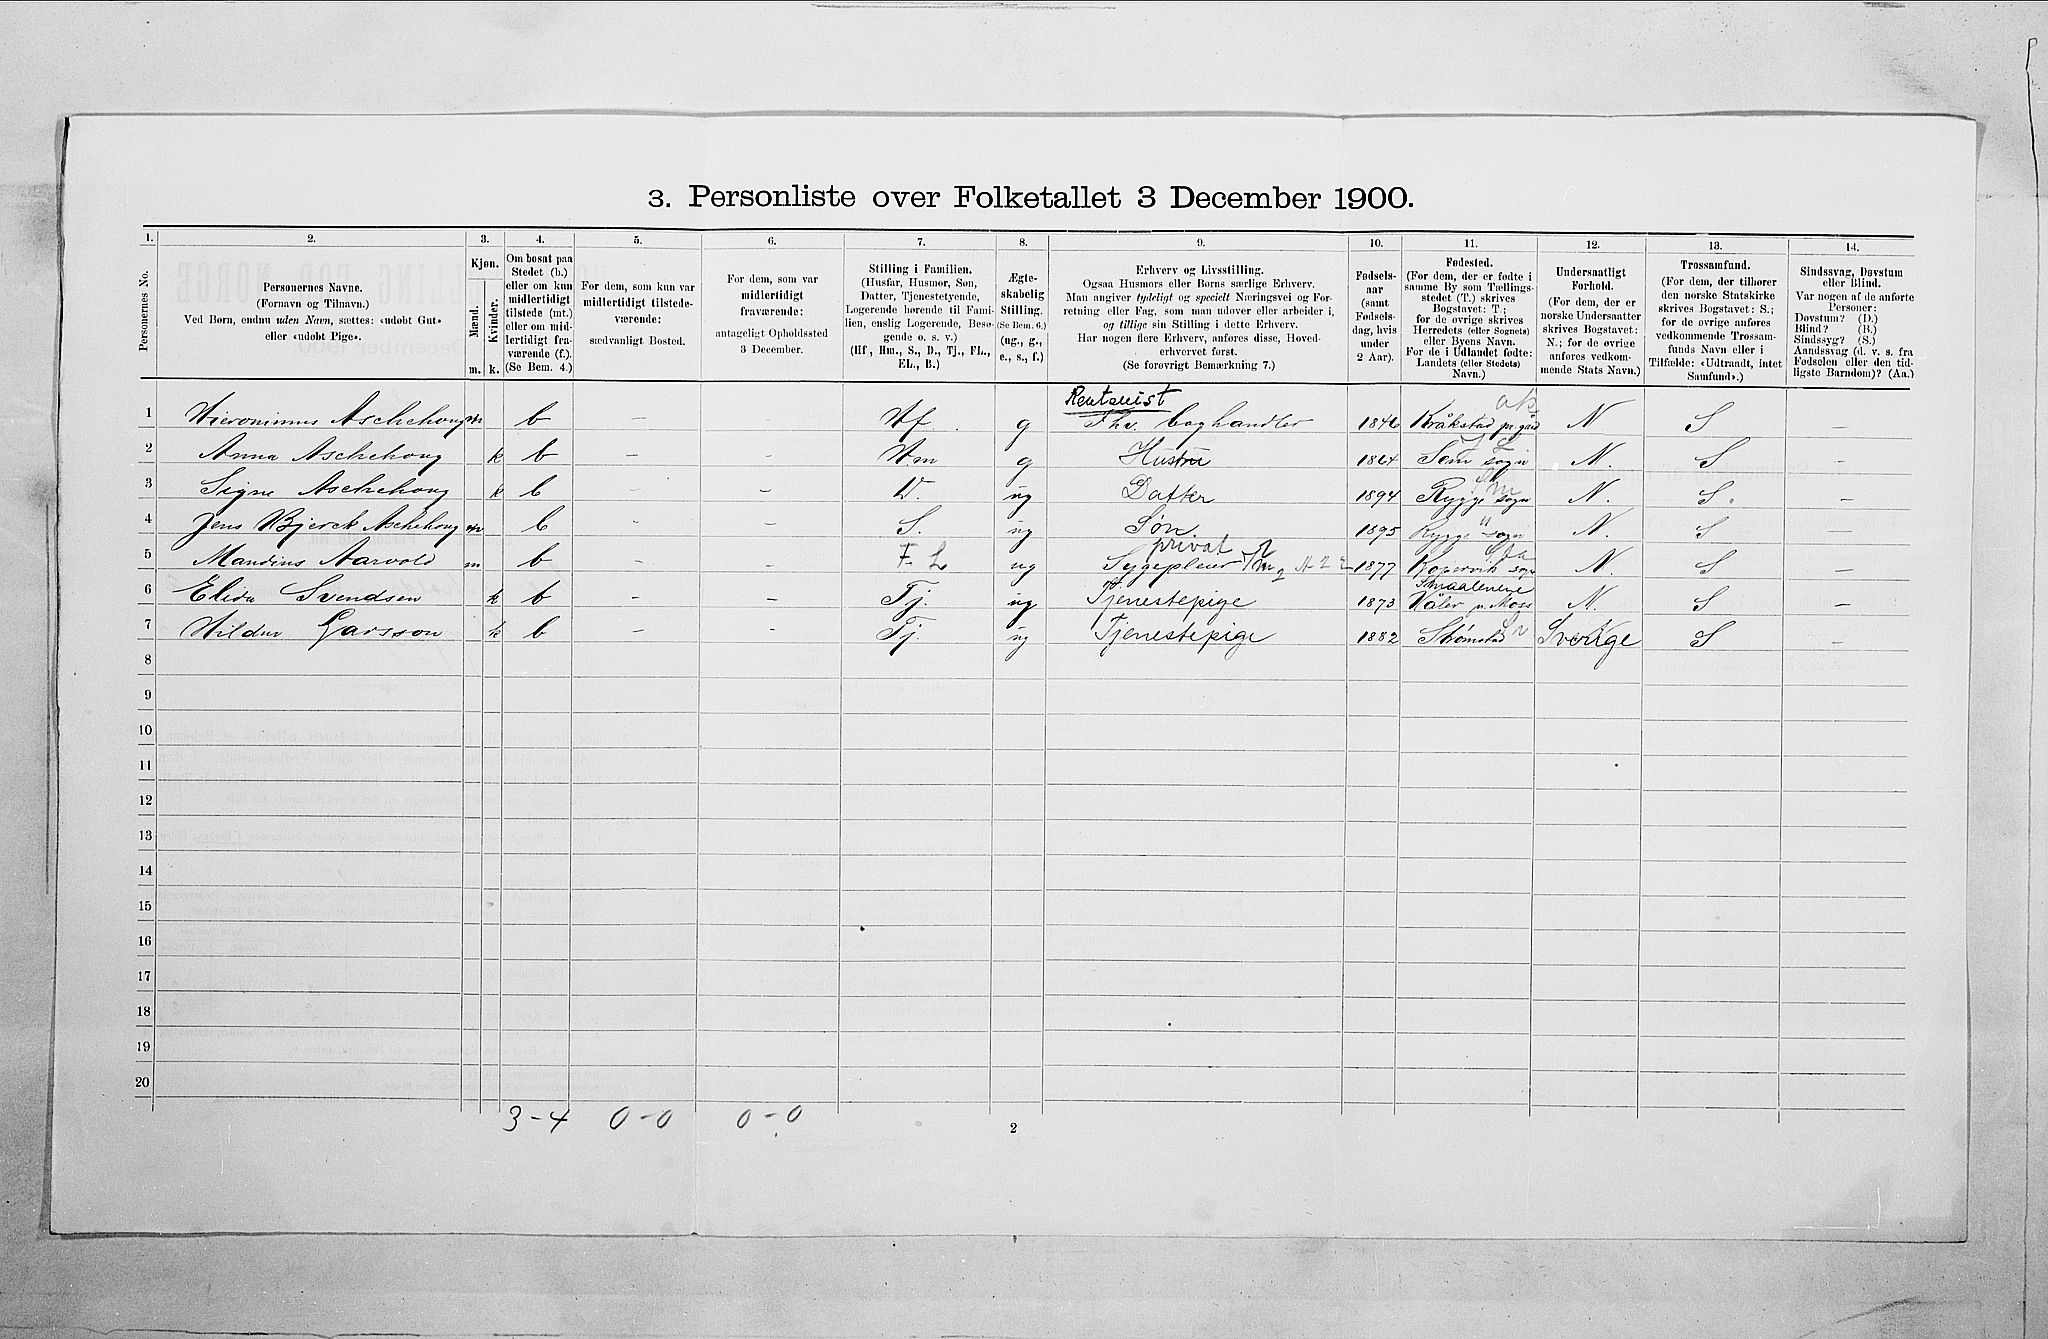 3. Personliste over Folketallet 3 December 1900.
1. 2. 3. 4. 5. 6. 7. 8. 9. 10. 11. 12. 13. 14.
Personernes No.
Personernes Navne.
(Fornavn og Tilnavn.)
Ved Børn, endnu uden Navn, sættes: «udøbt Gut»
eller «udøbt Pige».
Kjøn.
Mænd.
Kvinder.
m. k.
Om bosat paa
Stedet (b.)
eller om kun
midlertidigt
tilstede (mt.)
eller om mid-
lertidigt fra-
værende (f.).
(Se Bem. 4.)
For dem, som kun var
midlertidigt tilstede-
værende:
sædvanligt Bosted.
For dem, som var
midlertidigt
fraværende:
antageligt Opholdssted
3 December.
Stilling i Familien.
(Husfar, Husmor, Søn,
Datter, Tjenestetyende,
Logerende hørende til Fami-
lien, enslig Logerende, Besø-
gende o. s. v.)
(Hf., Hm., S., D., Tj., FL.,
EL., B.)
Ægte-
skabelig
Stilling.
(Se Bem. 6.)
(ug., g.,
e., s., f.)
Erhverv og Livsstilling.
Ogsaa Husmors eller Børns særlige Erhverv.
Man angiver tydeligt og specielt Næringsvei og For-
retning eller Fag, som man udøver eller arbeider i,
og tillige sin Stilling i dette Erhverv.
Har nogen flere Erhverv, anføres disse, Hoved-
erhvervet først.
(Se forøvrigt Bemærkning 7.)
Fødsels-
aar
(samt
Fødsels-
dag, hvis
under
2 Aar).
Fødested.
(For dem, der er fødte i
samme By som Tællings-
stedet (T.) skrives
Bogstavet: T.;
for de øvrige skrives
Herredets (eller Sognets)
eller Byens Navn.
For de i Udlandet fødte:
Landets (eller Stedets)
Navn.)
Undersaatligt
Forhold.
(For dem, der er
norske Undersaatter
skrives Bogstavet:
N.; for de øvrige
anføres vedkom-
mende Stats Navn.)
Trossamfund.
(For dem, der tilhører
den norske Statskirke
skrives Bogstavet: S.;
for de øvrige anføres
vedkommende Trossam-
funds Navn eller i
Tilfælde: «Udtraadt, intet
Samfund».)
Sindssvag, Døvstum
eller Blind.
Var nogen af de anførte
Personer:
Døvstum? (D.)
Blind? (B.)
Sindssyg? (S.)
Aandssvag (d. v. s. fra
Fødselen eller den tid-
ligste Barndom)? (Aa.)
Rentenist ak
1 Hieronimus Aschehoug m b – – Hf. g Fhv. boghandler 1846 Kråkstad pr.gård N S –
2 Anna Aschehoug k b – – Hm g Hustru 1864 Sem sogn N. S –
3 Signe Aschehoug k b – – D. ug Datter 1894 Rygge sogn N. S. –
4 Jens Bjerck Aschehoug m b – – S. ug Søn 1895 Rygge sogn N. S –
privat
5 Mandius Aarvold m b – – F L ug Sygepleier 1877 Kopervik sogn N. S –
Smaalenene
6 Elida Svendsen k b – – Tj. ug Tjenestepige 1873 Våler p. Moss N. S –
7 Hildur Garsson k b – – Tj. ug Tjenestepige 1882 Strømstad Sverige S –
8
9
10
11
12
13
14
15
16
17
18
19
20
3–4 0–0 0–0
2